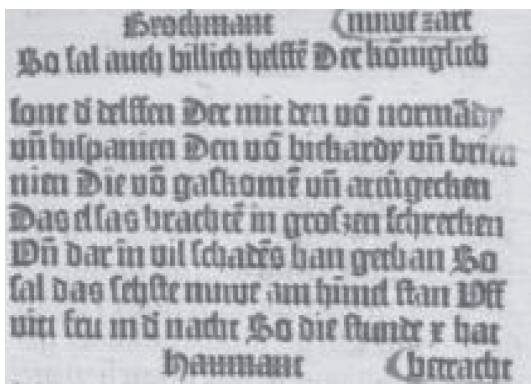 Brochmant (nuwe zart
So sal auch billich helffē Der kőniglich
sone d̄ delffen Der mit den vō normādy
vn̄ hispanien Den vō bickardy vn̄ brita
nien Die vō gaskomē vn̄ armgecken
Das elsas brachtē in groszen schrecken
Vn̄ dar in vil schadēs han gethan So
sal das sechste nuwe am hīmel stan Vff
viti fru in d̄ nacht So die stunde x hat
Haumant (betracht